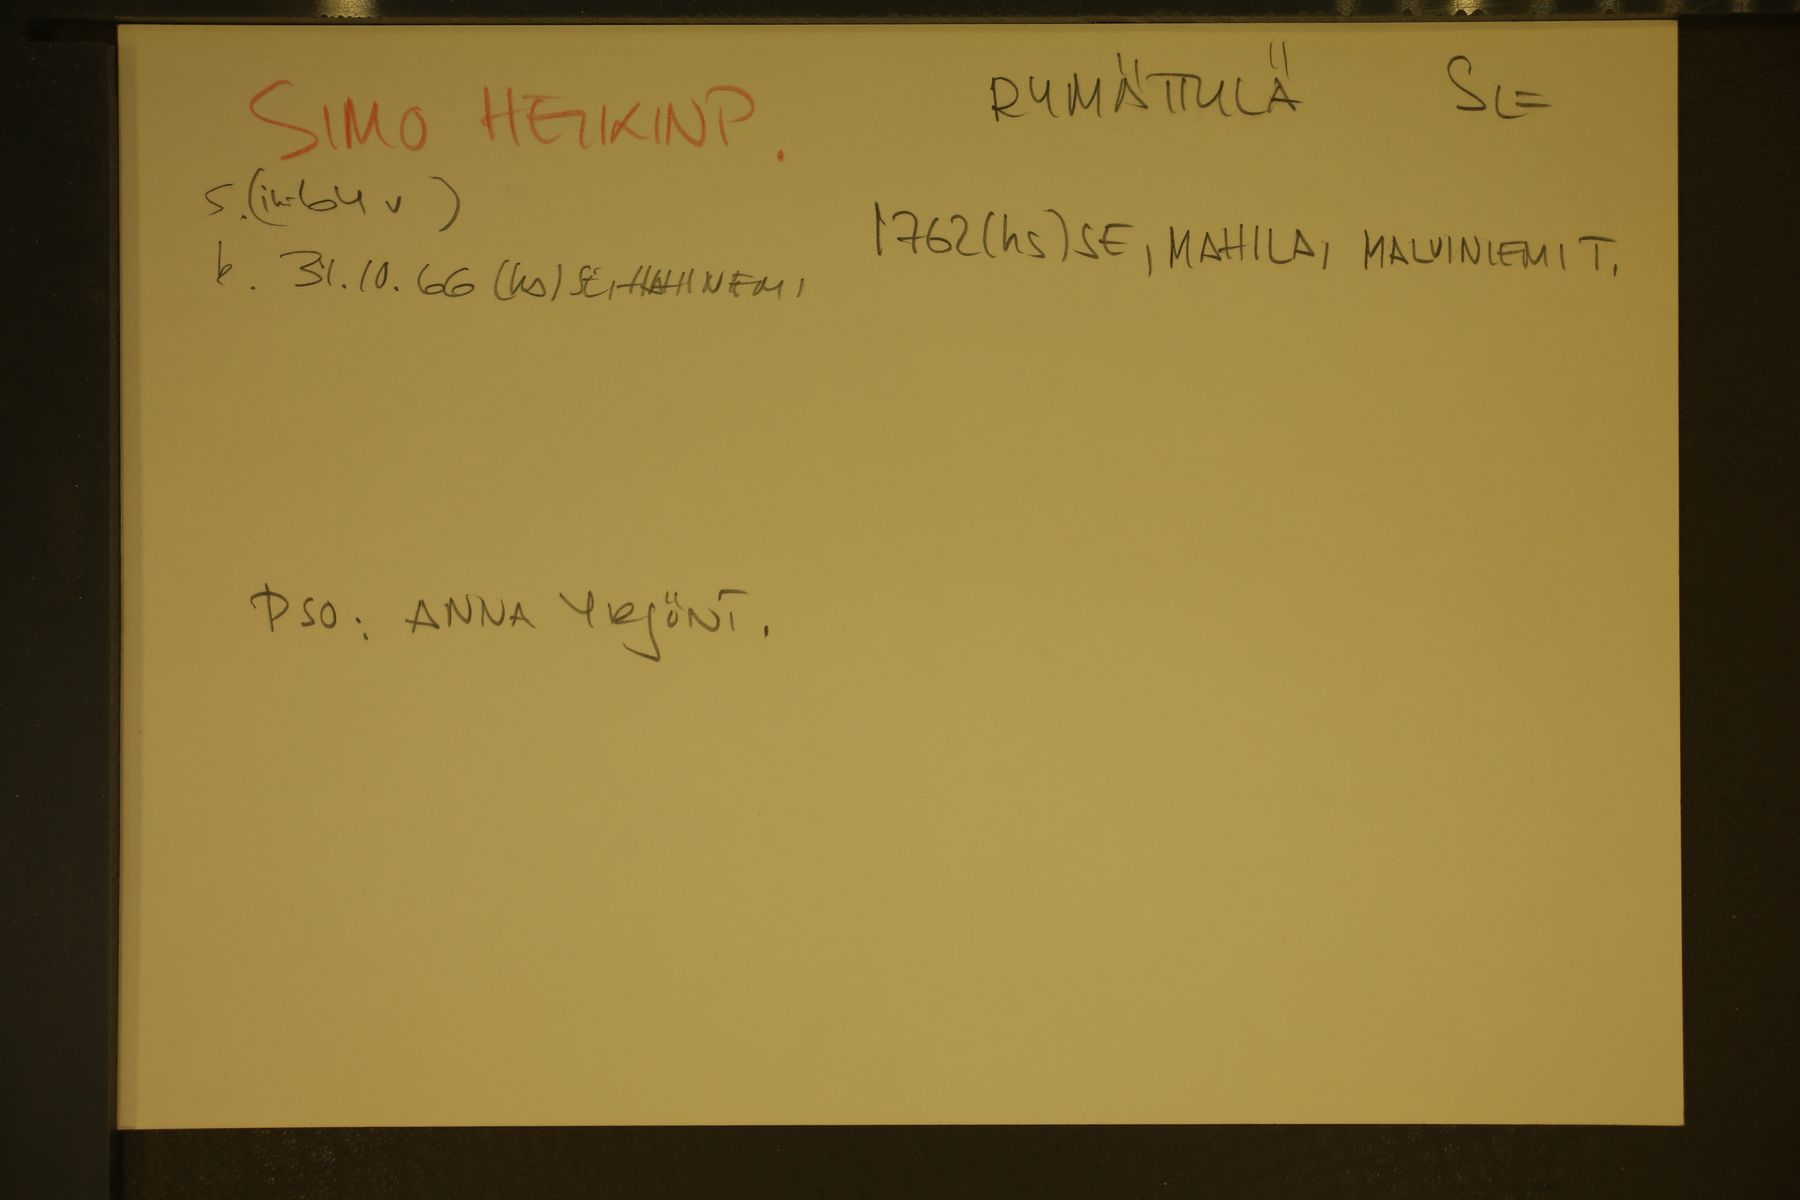 SIMO HEIKINP.
RYMÄTTYLÄ SLE
S. (ik. 64 v)
k. 31.10.66 (hs) SE,
1762 (hs) SE, MAHILA, MALVINIEMI T.
PSO: ANNA YRJÖNT.